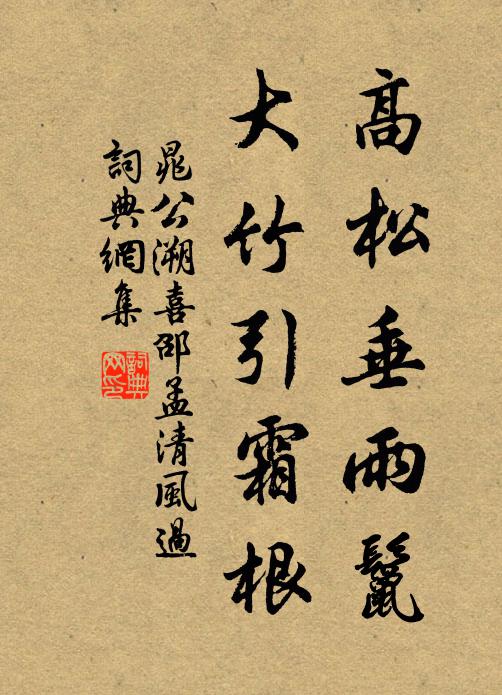 高松垂雨鬣
大竹引霜根
晁公溯喜邵孟清風過
詞典網集
詞典
网印